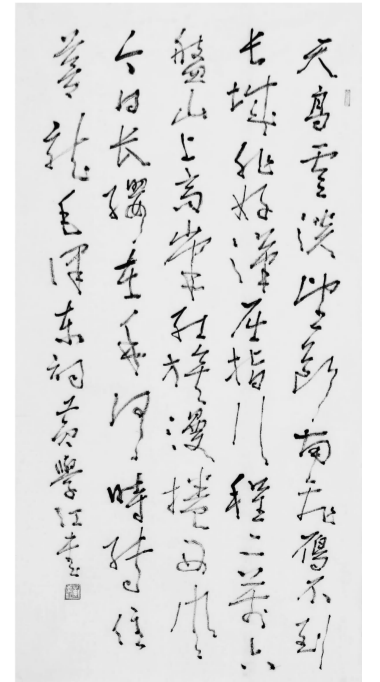 天高雲淡望斷南飛雁不到
长城非好漢屈指行程二萬六
盤山上高峰紅旗漫捲西風
今日长纓在手何時縛住
蒼龍毛澤東詞黄學江書